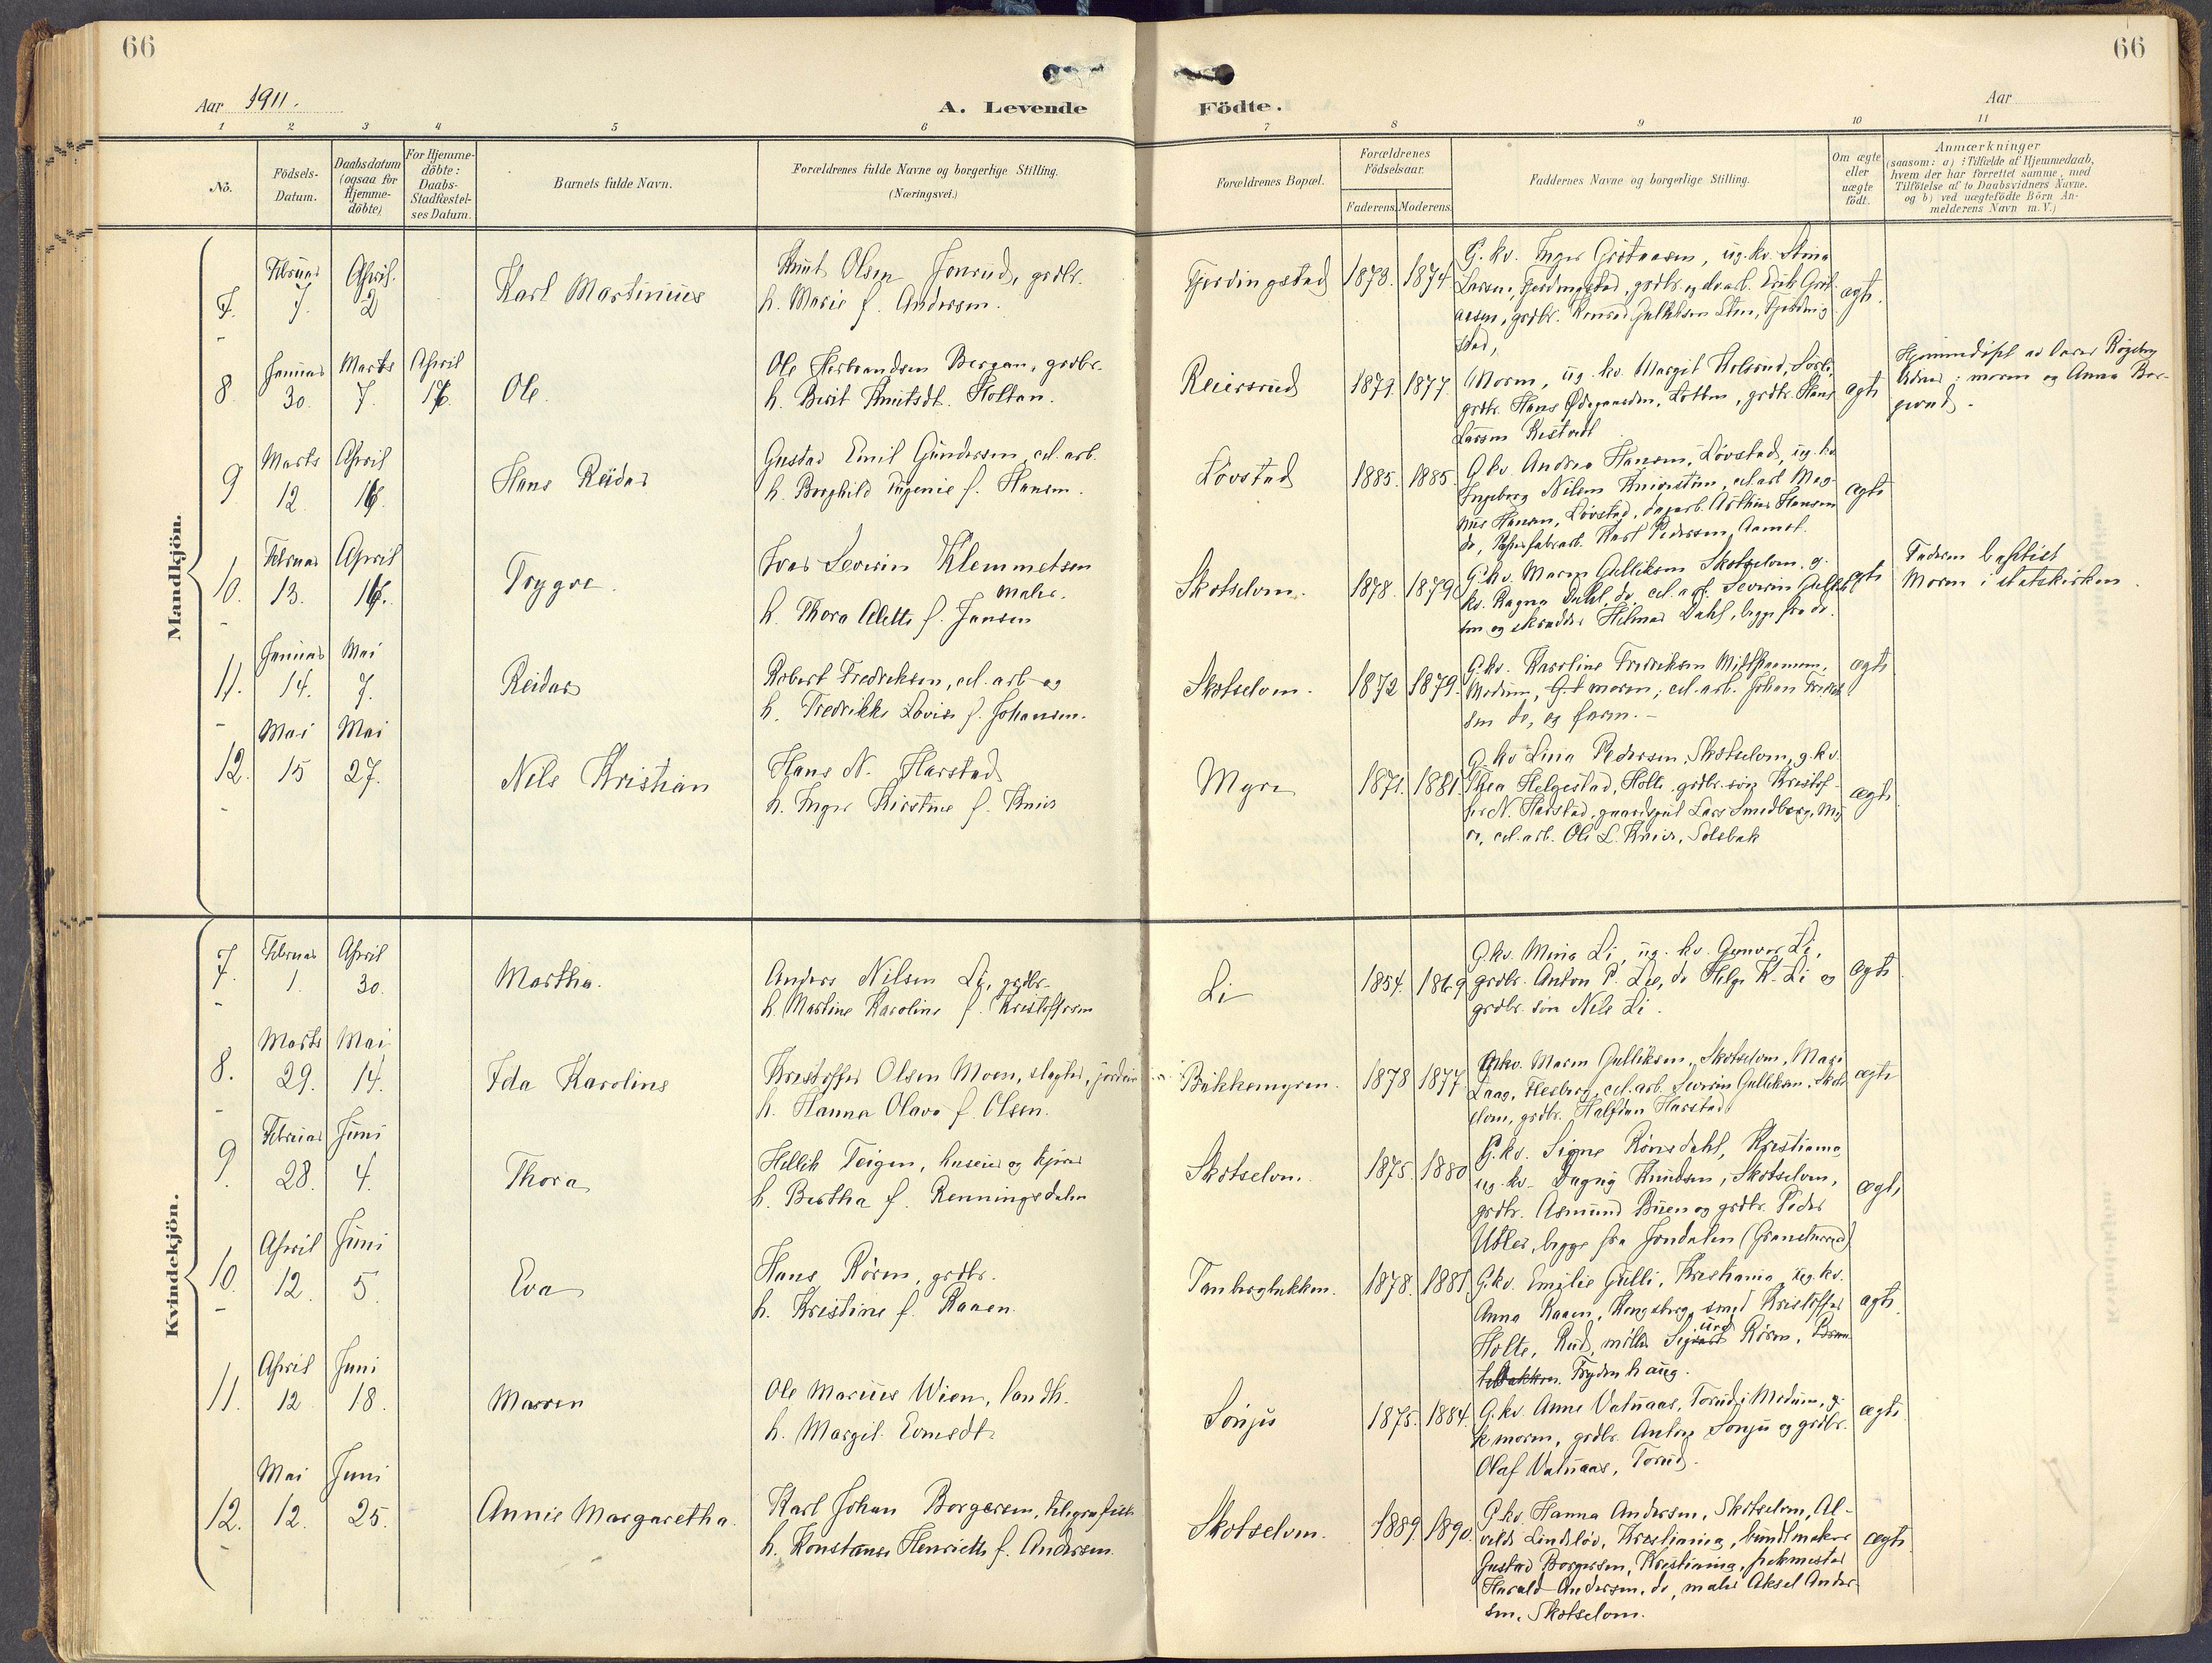 66
66
Aar 1911.
A. Levende Födte.
Aar
1 2 3 4 5 6 7 8 9 10 11
No.
Födsels-Datum.
Daabsdatum (ogsaa for Hjemme-döbte)
For Hjemme-döbte: Daabs-Stadfæstel-ses Datum.
Barnets fulde Navn.
Forældrenes fulde Navne og borgerlige Stilling.
(Næringsvei.)
Forældrenes Bopæl.
Forældrenes Födselsaar.
Faderens. Moderens.
Faddernes Navne og borgerlige Stilling.
Om ægte eller uægte födt.
Anmærkninger
(saasom: a) i Tilfælde af Hjemmedaab,
hvem der har forrettet samme, med
Tilföielse af to Daabsvidners Navne.
og b) ved uægtefödte Börn An-
melderens Navn m. V.)
Mandkjön.
7. Februar 7. April 2 Karl Martinius
Knut Olsen Jonrud, grdbr.
h. Marie f. Andersen.
Fjerdingstad 1873. 1874.
G. kv. Inger Gristaasen, ug. kv. Stina
Larsen, Fjerdingstad, grdbr. og do arb. Erik Grist-
aasen, grdbr. Konrad Gulliksen Sten, Fjerding-
stad,
ægte.
8 Januar 30. Marts 7. April 17. Ole
Ole Herbrandsen Bergan, grdbr.
h. Berit Knutsdt. Holtan.
Reiersrud 1879. 1877.
Moren, ug. kv. Margit Kolsrud,
grdbr. Hans Ødegaarden, Lotten, grdbr. Hans
Larsen
ægte
Hjemmedøpt av
moren og Anna Bor-
gerud.
9 Marts 12 April 16. Hans Reidar
Gustav Emil Gundersen, cel. arb.
h. Borghild Eugenie f. Hansen.
Løvstad 1885. 1885.
G. kv. Andrea Hansen, Løvstad, ug. kv.
Ingeborg Nilsen cel. arb. Mag-
nus Hansen, Løvstad, dagarb. Arthur Hansen
do, Papirfabrarb. Karl Pedersen, Aamot.
ægte
10. Februar 13. April 16. Trygve
Ivar Severin Klemmetsen
maler.
h. Thora Alette f. Jansen
Skotselven. 1878. 1879
G. kv. Maren Gulliksen Skotselven, g.
kv. Ragna Dahl, do, cel. arb. Severin Gullik-
sen og skrædder Hilmar Dahl, begge fra do.
ægte
Faderen baptist
Moren i statskirken.
11. Januar 14. Mai 7. Reidar
Robert Fredriksen, cel. arb. og
h. Fredrikke Lovise f. Johansen.
Skotselven. 1872 1879.
G. kv. Karoline Fredriksen
Modum, moren; cel. arb. Johan Fredrik-
sen do, og faren. -
ægte
12. Mai 15 Mai 27. Nils Kristian
Hans N. Harstad
h. Inger Kirstine f. Kniv
Myra 1871. 1881.
G. kv Lina Pedersen, Skotselven, g. kv.
Thea Helgestad, Holte, grdbr. søn Kristof-
fer N. Harstad, gaardsgut Lars Smedberg, My-
ra, cel. arb. Ole L. Kniv, Solebak
ægte
Kvindekjön.
7. Februar 1. April 30. Martha.
Anders Nilsen Li, grdbr.
h. Martine Karoline f. Kristoffersen
Li 1854. 1869
G. kv. Mina Li, ug. kv. Gunvor Li,
grdbr. Anton P. Lie, do Helge K. Li og
grdbr. søn Nils Li.
ægte
8. Marts 29. Mai 14. Ida Karoline
Kristoffer Olsen Moen, slagter, jordeier
h. Hanna Olava f. Olsen.
Bukkemyren. 1878 1877
G. kv. Maren Gulliksen, Skotselven, Mari
Laag, Flesberg, cel. arb. Severin Gulliksen, Skots-
elven, grdbr. Halfdan Harstad.
ægte
9. Februar 28. Juni 4. Thora
Hellik Teigen, huseier og
h. Bertha f. Renningsdalen
Skotselven. 1875. 1880
G. kv. Signe Rønsdahl, Kristiania
ug. kv. Dagny Knudsen, Skotselven,
grdbr. Asmund Buen og grdbr. Peder
begge fra Jondalen
ægte
10. April 12. Juni 5. Eva
Hans Røren, grdbr.
h. Kristine f. Raaen.
Tanbergløkken. 1878. 1881.
G. kv. Emilie Gulli, Kristiania, ug. kv.
Anna Raaen, Kongsberg, smed Kristoffer
Holte, Rud, møller Sigurd Røren,
Frydenhaug.
ægte.
11. April 12 Juni 18. Marren
Ole Marius Wien, landh.
h. Margit
Sønju 1875. 1884.
G. kv. Anne Vatnaas, Torud i Modum, g.
k moren, grdbr. Anton Sønju og grdbr.
Olaf Vatnaas, Torud.
ægte
12. Mai 12. Juni 25. Annie Margaretha.
Karl Johan Borgersen, telegrafist
h. Konstanse Henriette f. Andersen.
Skotselven. 1889. 1890.
G. kv. Hanna Andersen, Skotselven, Al-
vilde Lindsløv, Kristiania, buntmaker
Gustav Borgersen, Kristiania,
Harald Andersen, do, maler Aksel Ander-
sen, Skotselven.
ægte